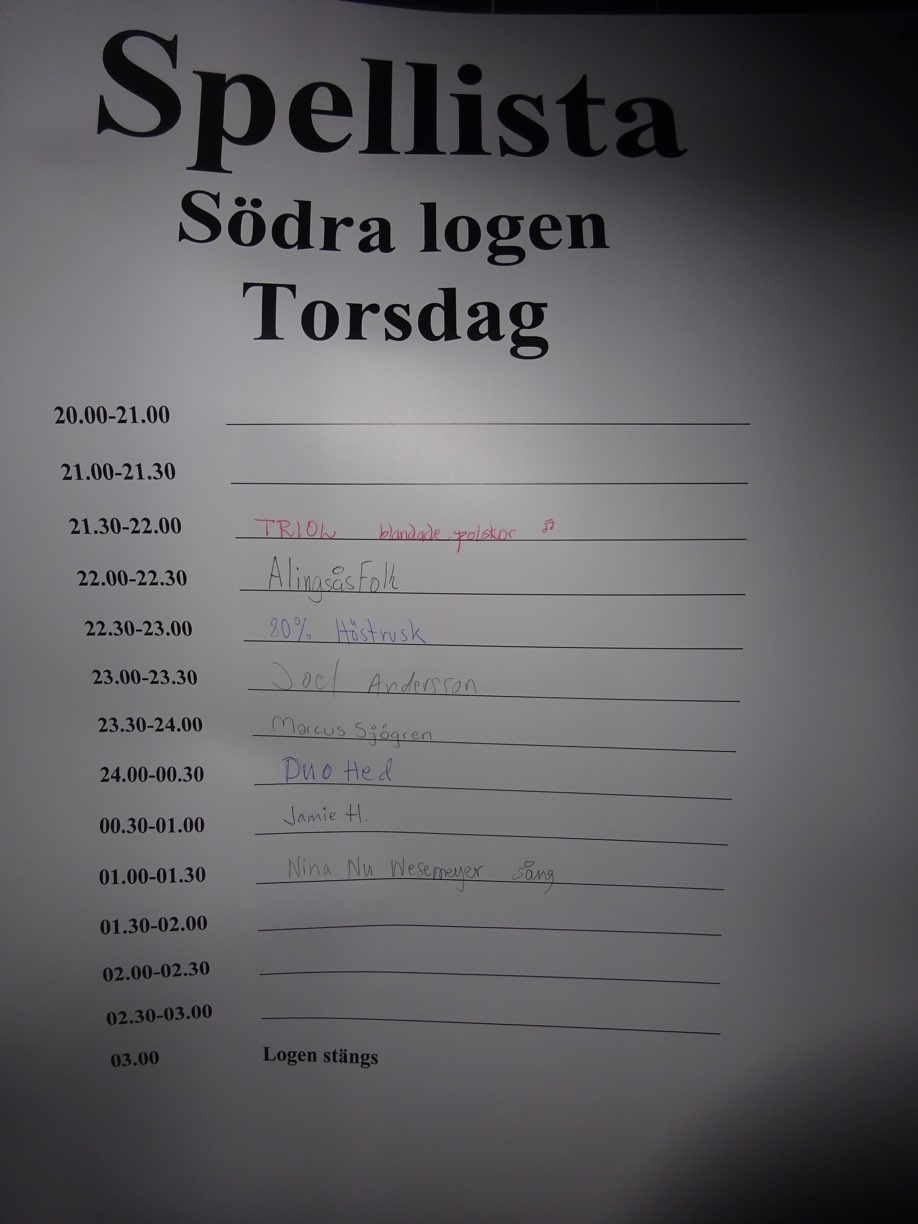 Spellista
Södra logen
Torsdag
20.00-21.00
21.00-21.30
21.30-22.00 TRIOL blandade polskor ♫
22.00-22.30 AlingsåsFolk
22.30-23.00 80% Höstrusk
23.00-23.30 Joel Andersson
23.30-24.00 Marcus Sjögren
24.00-00.30 Duo Hed
00.30-01.00 Jamie H.
01.00-01.30 Nina Nu Wesemeyer sång
01.30-02.00
02.00-02.30
02.30-03.00
03.00 Logen stängs